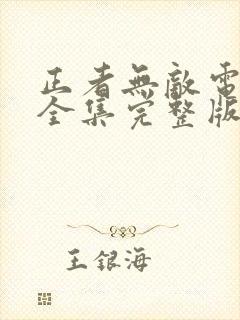 正者無敵電
全集完整版
王银海